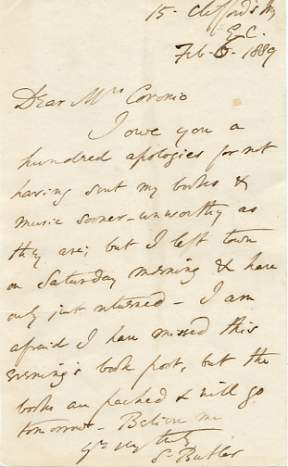 15. Clifford's Inn
E.C.
Feb. 5. 1889
Dear Mrs Coronio
I owe you a
hundred apologies for not
having sent my books &
music sooner - unworthy as
they are; but I left town
on Saturday morning & have
only just returned - I am
afraid I have missed this
evening's book post, but the
books are packed & will go
tomorrow - Believe me
Yrs very truly
S. Butler